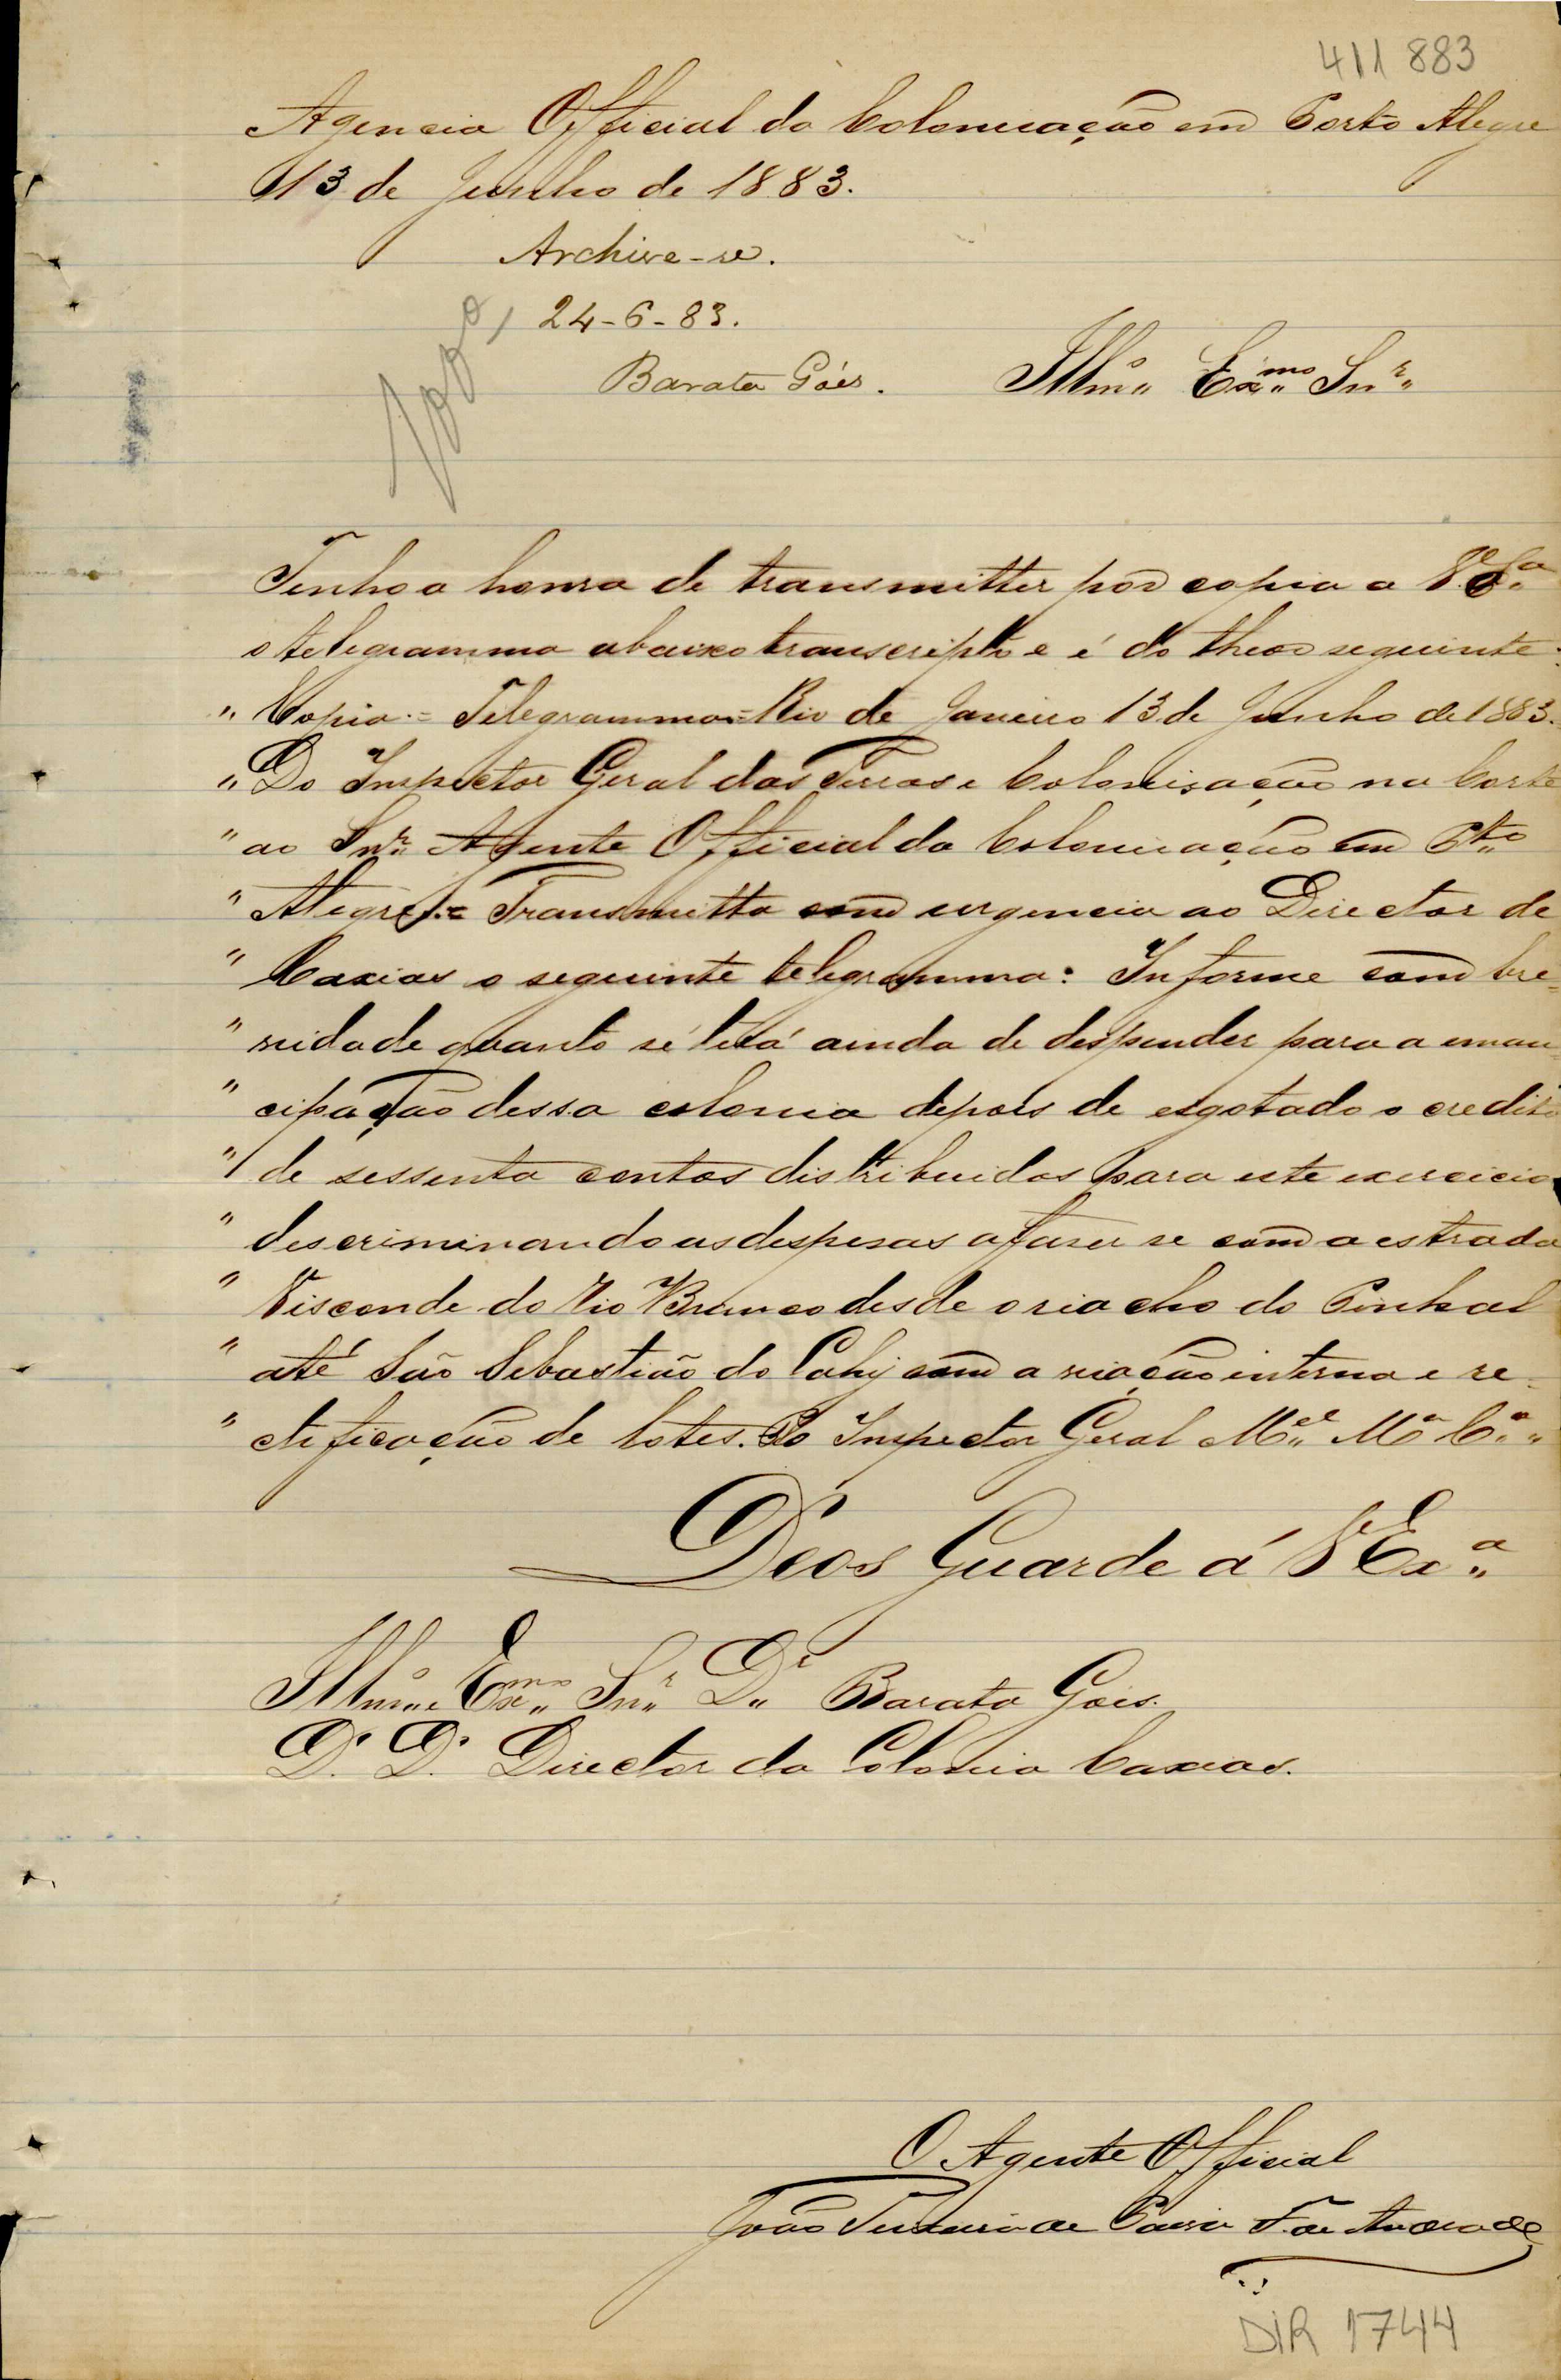 411 883
Agencia Official da Colonisação em Porto Alegre
13 de Junho de 1883.
Archive-se.
24-6-83.
Barata Góes. Illmº Exmo Snr
Tenho a honra de transmitter por copia a V. Eª
o telegramma abaixo transcripto e é do theor seguinte:
" Copia.= Telegramma= Rio de Janeiro 13 de Junho de 1883.
" Do Inspector Geral das Terras e Colonisação na Corte
" ao Snr Agente Official da Colonisação em Pto
" Alegre.= Transmitta com urgencia ao Director de
" Caxias o seguinte telegramma: Informe com bre=
" vidade quanto se terá ainda de despender para a eman
" cipação dessa colonia depois de esgotado o credito
" de sessenta contos distribuidos para este exercicio
" descriminando as despesas a faser se com a estrada
" Visconde do Rio Branco desde o riacho do Pinhal
" até São Sebastião do Cahy com a viação interna e re=
" ctificação de lotes. Do Inspector Geral Mel Mª Cª
Deos Guarde á V Exª
Illmº Exmo Snr Dr Barata Góes.
D. D. Director da Colonia Caxias.
O Agente Official
João Teixeira de F. de Andrade
DIR 1744